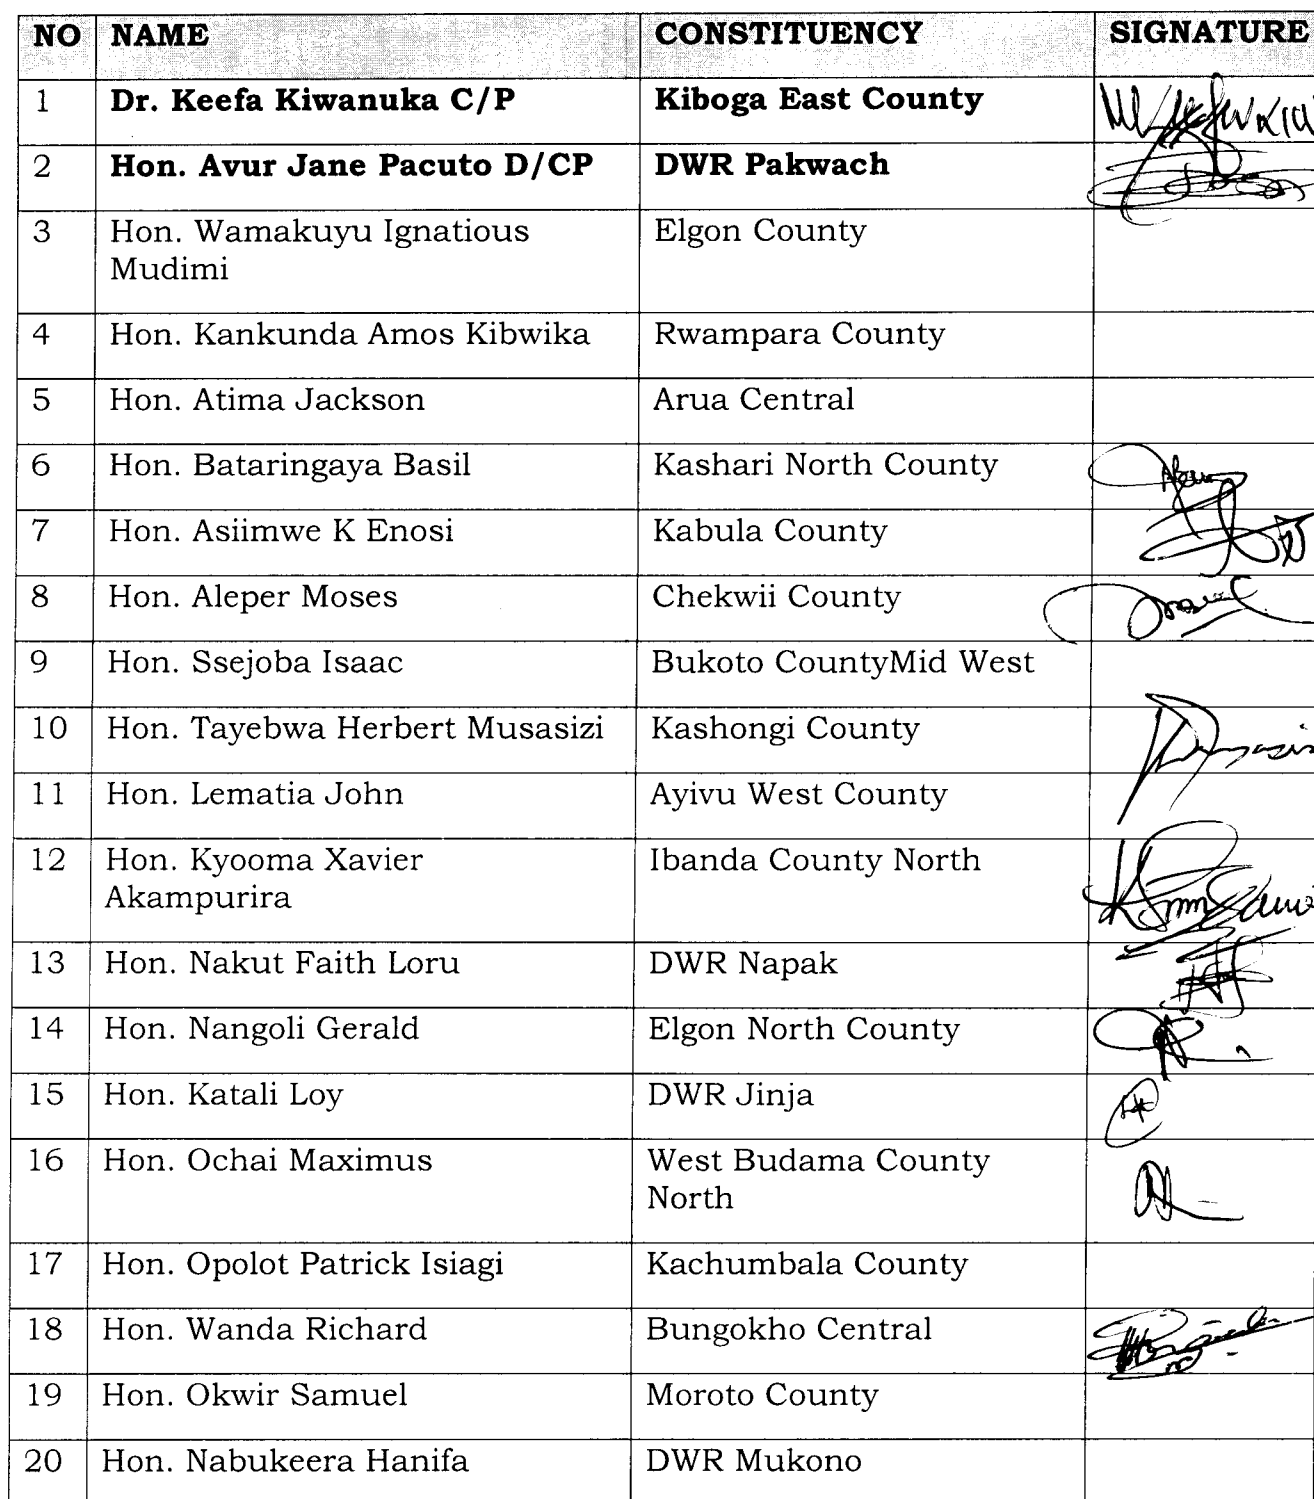 NO NAME CONSTITUENCY SIGNATURE
1 Dr. Keefa Kiwanuka C/P Kiboga East County
2 Hon. Avur Jane Pacuto D/CP DWR Pakwach
3 Hon. Wamakuyu Ignatious Elgon County
Mudimi
4 Hon. Kankunda Amos Kibwika Rwampara County
5 Hon. Atima Jackson Arua Central
6 Hon. Bataringaya Basil Kashari North County
7 Hon. Asiimwe K Enosi Kabula County
8 Hon. Aleper Moses Chekwii County
9 Hon. Ssejoba Isaac Bukoto CountyMid West
10 Hon. Tayebwa Herbert Musasizi Kashongi County
11 Hon. Lematia John Ayivu West County
12 Hon. Kyooma Xavier Ibanda County North
Akampurira
13 Hon. Nakut Faith Loru DWR Napak
14 Hon. Nangoli Gerald Elgon North County
15 Hon. Katali Loy DWR Jinja
16 Hon. Ochai Maximus West Budama County
North
17 Hon. Opolot Patrick Isiagi Kachumbala County
18 Hon. Wanda Richard Bungokho Central
19 Hon. Okwir Samuel Moroto County
20 Hon. Nabukeera Hanifa DWR Mukono